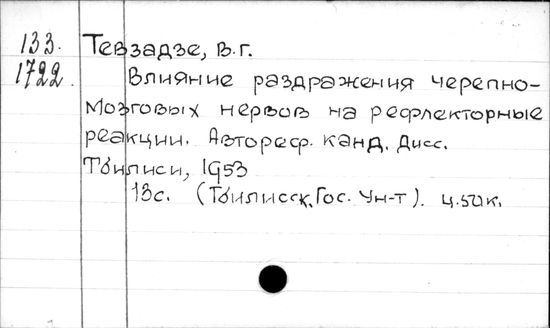 133. Тевзадзе, В.Г.
1722. Влияние раздражения черепно-
мозговых нервов на рефлекторные
реакции. Автореф. канд. дисс.
Тбилиси, 1953
13с. (Тбилисск. Гос. Ун-т). ц.50к.